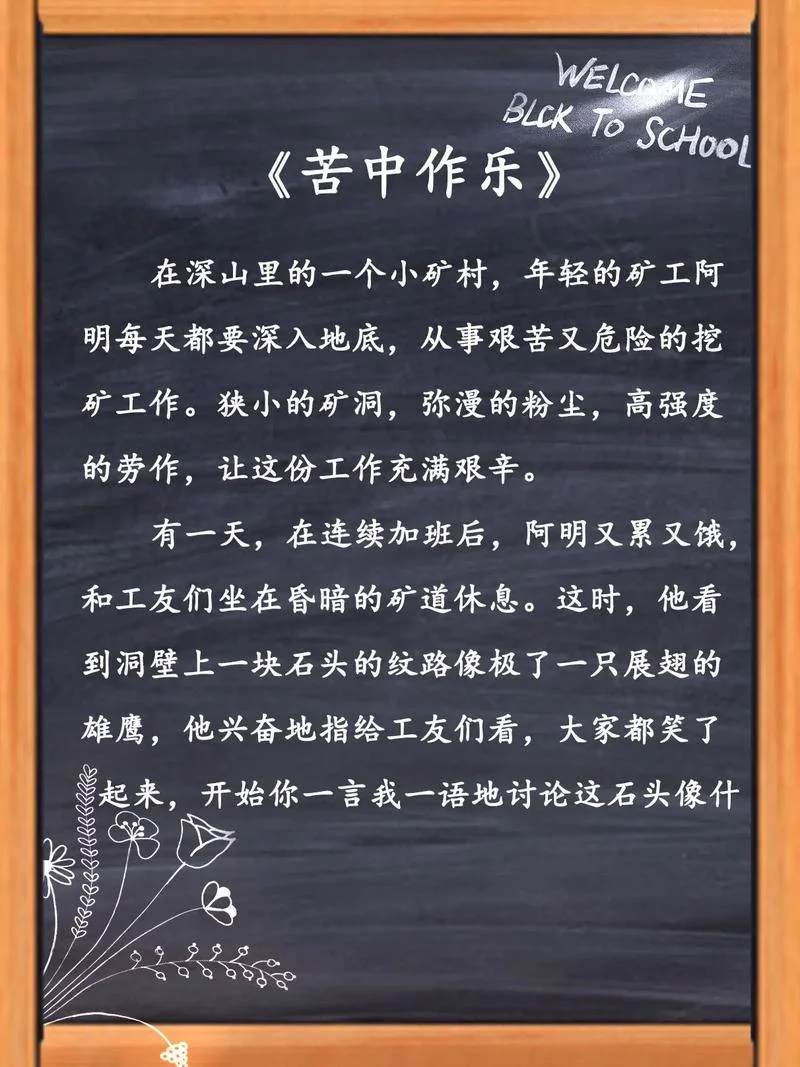 WELCOME
BLCK TO SCHOOL
《苦中作乐》
在深山里的一个小矿村，年轻的矿工阿
明每天都要深入地底，从事艰苦又危险的挖
矿工作。狭小的矿洞，弥漫的粉尘，高强度
的劳作，让这份工作充满艰辛。
有一天，在连续加班后，阿明又累又饿，
和工友们坐在昏暗的矿道休息。这时，他看
到洞壁上一块石头的纹路像极了一只展翅的
雄鹰，他兴奋地指给工友们看，大家都笑了
起来，开始你一言我一语地讨论这石头像什